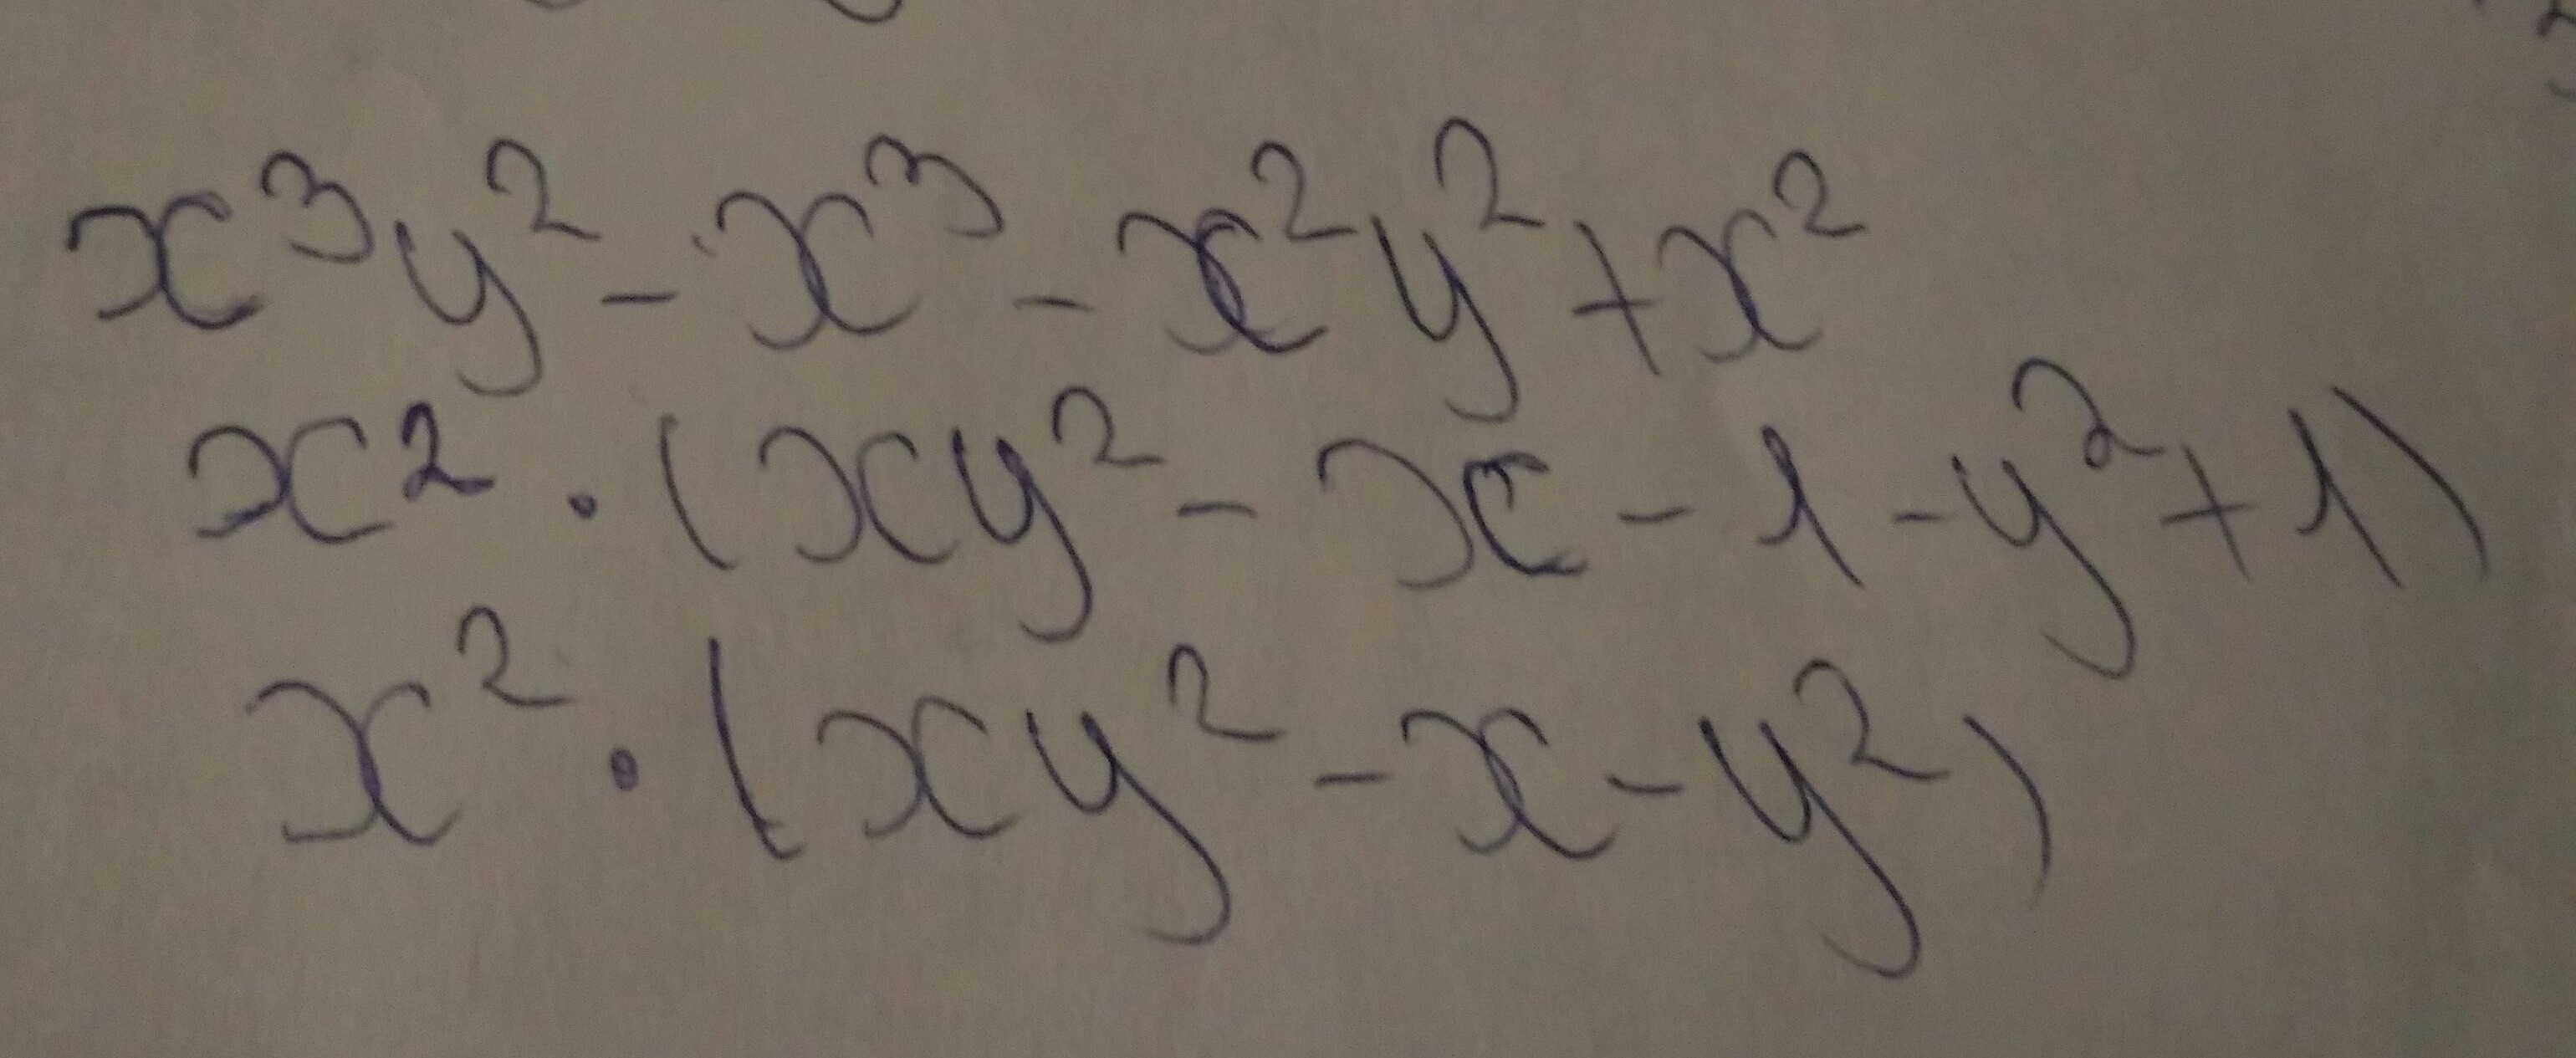 x³y² - x³ - x²y² + x²
x² · (xy² - x - 1 - y² + 1)
x² · (xy² - x - y²)